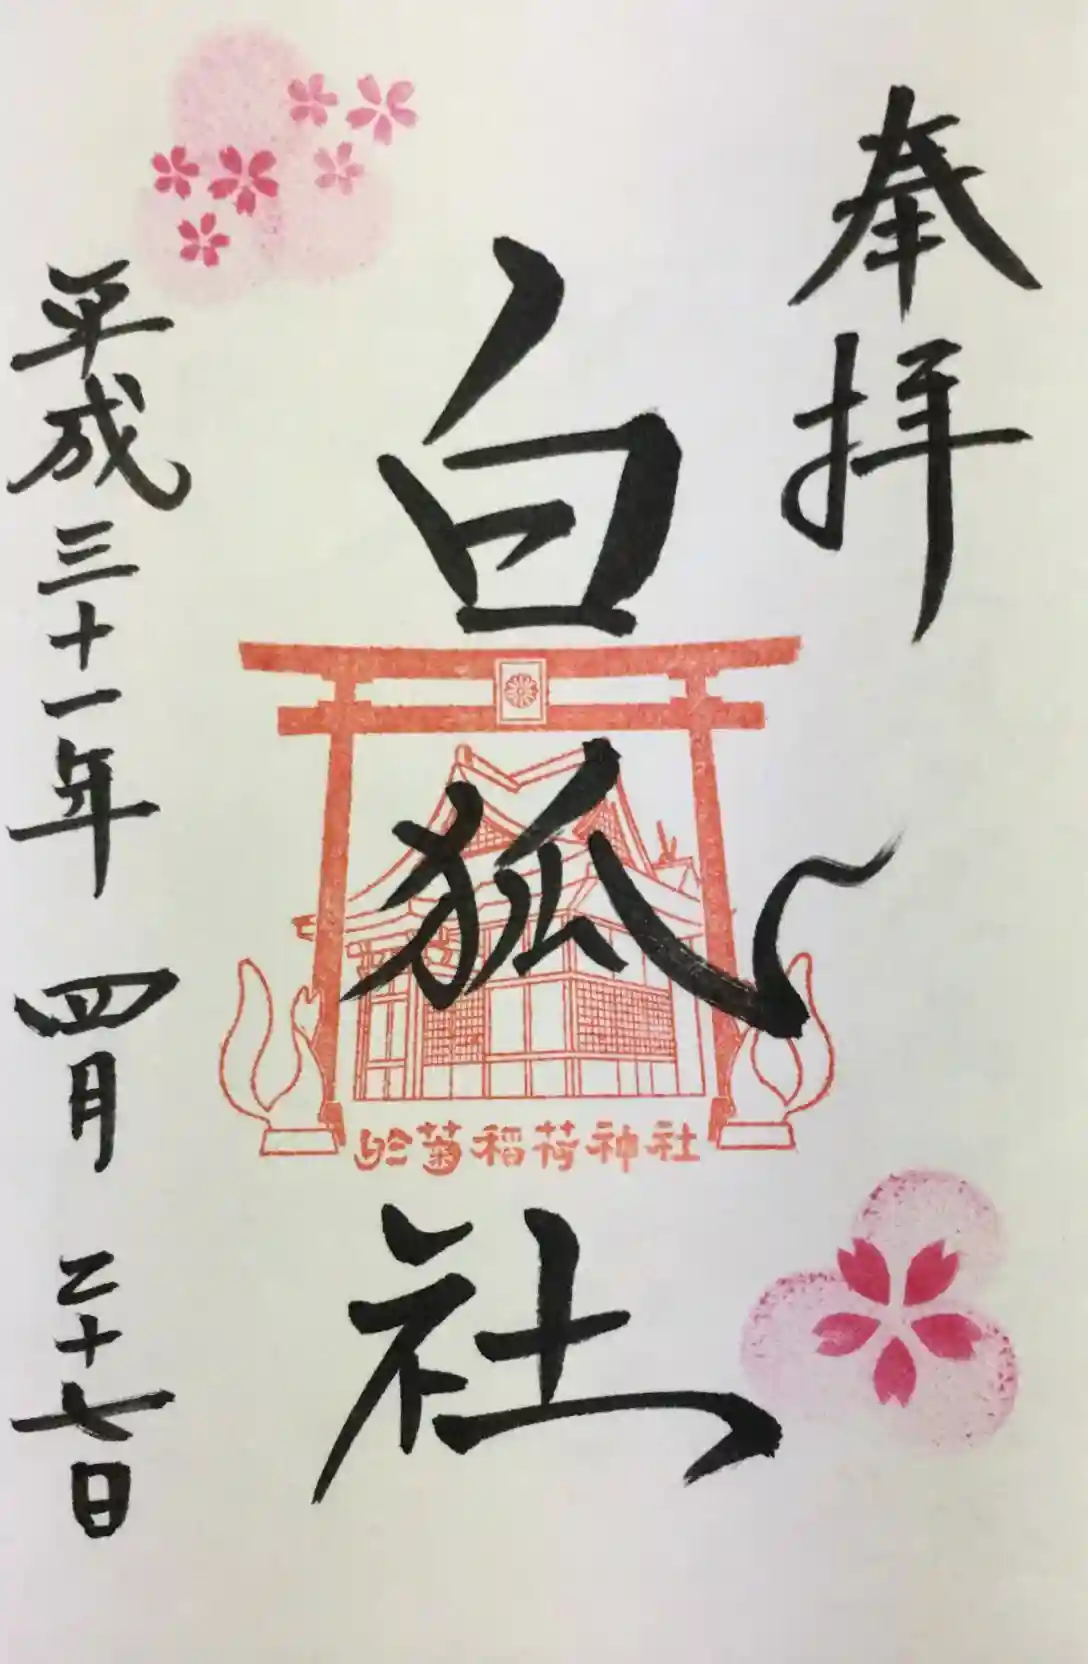 奉拝
白狐社
於菊稲荷神社
平成三十一年 四月 二十七日